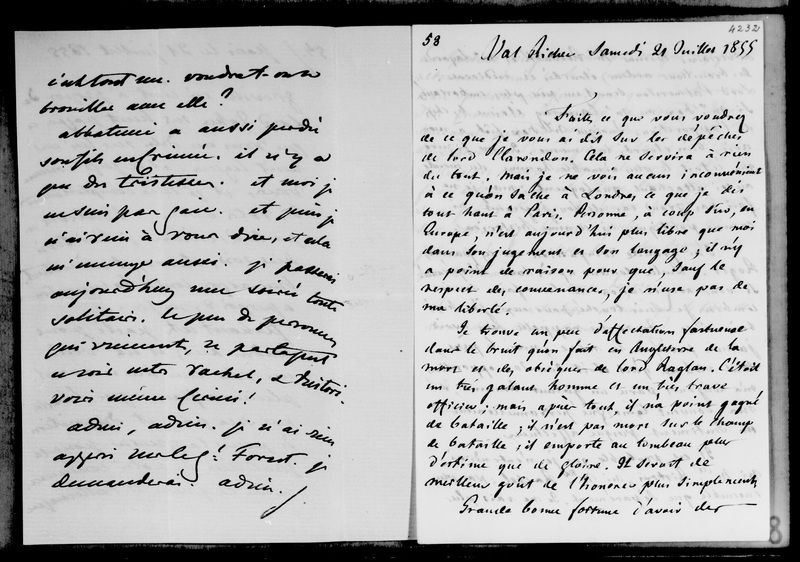 voudrait on se
brouiller avec elle?
abbatucci a aussi perdu
son fils en Crimée. il n'y a
que des tristesses. et moi je
ne suis pas gaie. et puis je
n'ai rien à vous dire, et cela
m'ennuye aussi. je passerai
aujourd'huy une soirée toute
solitaire. le peu de personnes
qui viennent, se partagent
entre Rachel, & Ristori.
voir même Cerini!
adieu, adieu. je n'ai rien
appris Forest. je
demanderai. adieu.
4232
58
Val Richer Samedi 21 Juillet 1855
Faites ce que vous voudrez
de ce que je vous ai dit sur les dépêches
de lord Clarendon. Cela ne servira à rien
du tout. Mais je ne vois aucun inconvénient
à ce qu'on sache à Londres ce que je dis
tout haut à Paris. Personne, à coup sûr, en
Europe, n'est aujourd'hui plus libre que moi
dans son jugement et son langage; il n'y
a point de raison pour que, sauf le
respect des convenances, je n'use pas de
ma liberté.
Je trouve un peu d'affectation fastueuse
dans le bruit qu'on fait en Angleterre de la
mort et des obsèques de lord Raglan. C'était
un très galant homme et un très brave
officier; mais après tout, il n'a point gagné
de bataille; il n'est pas mort sur le champ
de bataille; il emporte au tombeau plus
d'estime que de gloire. Il serait de
meilleur goût de l'honorer plus simplement.
Grande bonne fortune d'avoir des
8